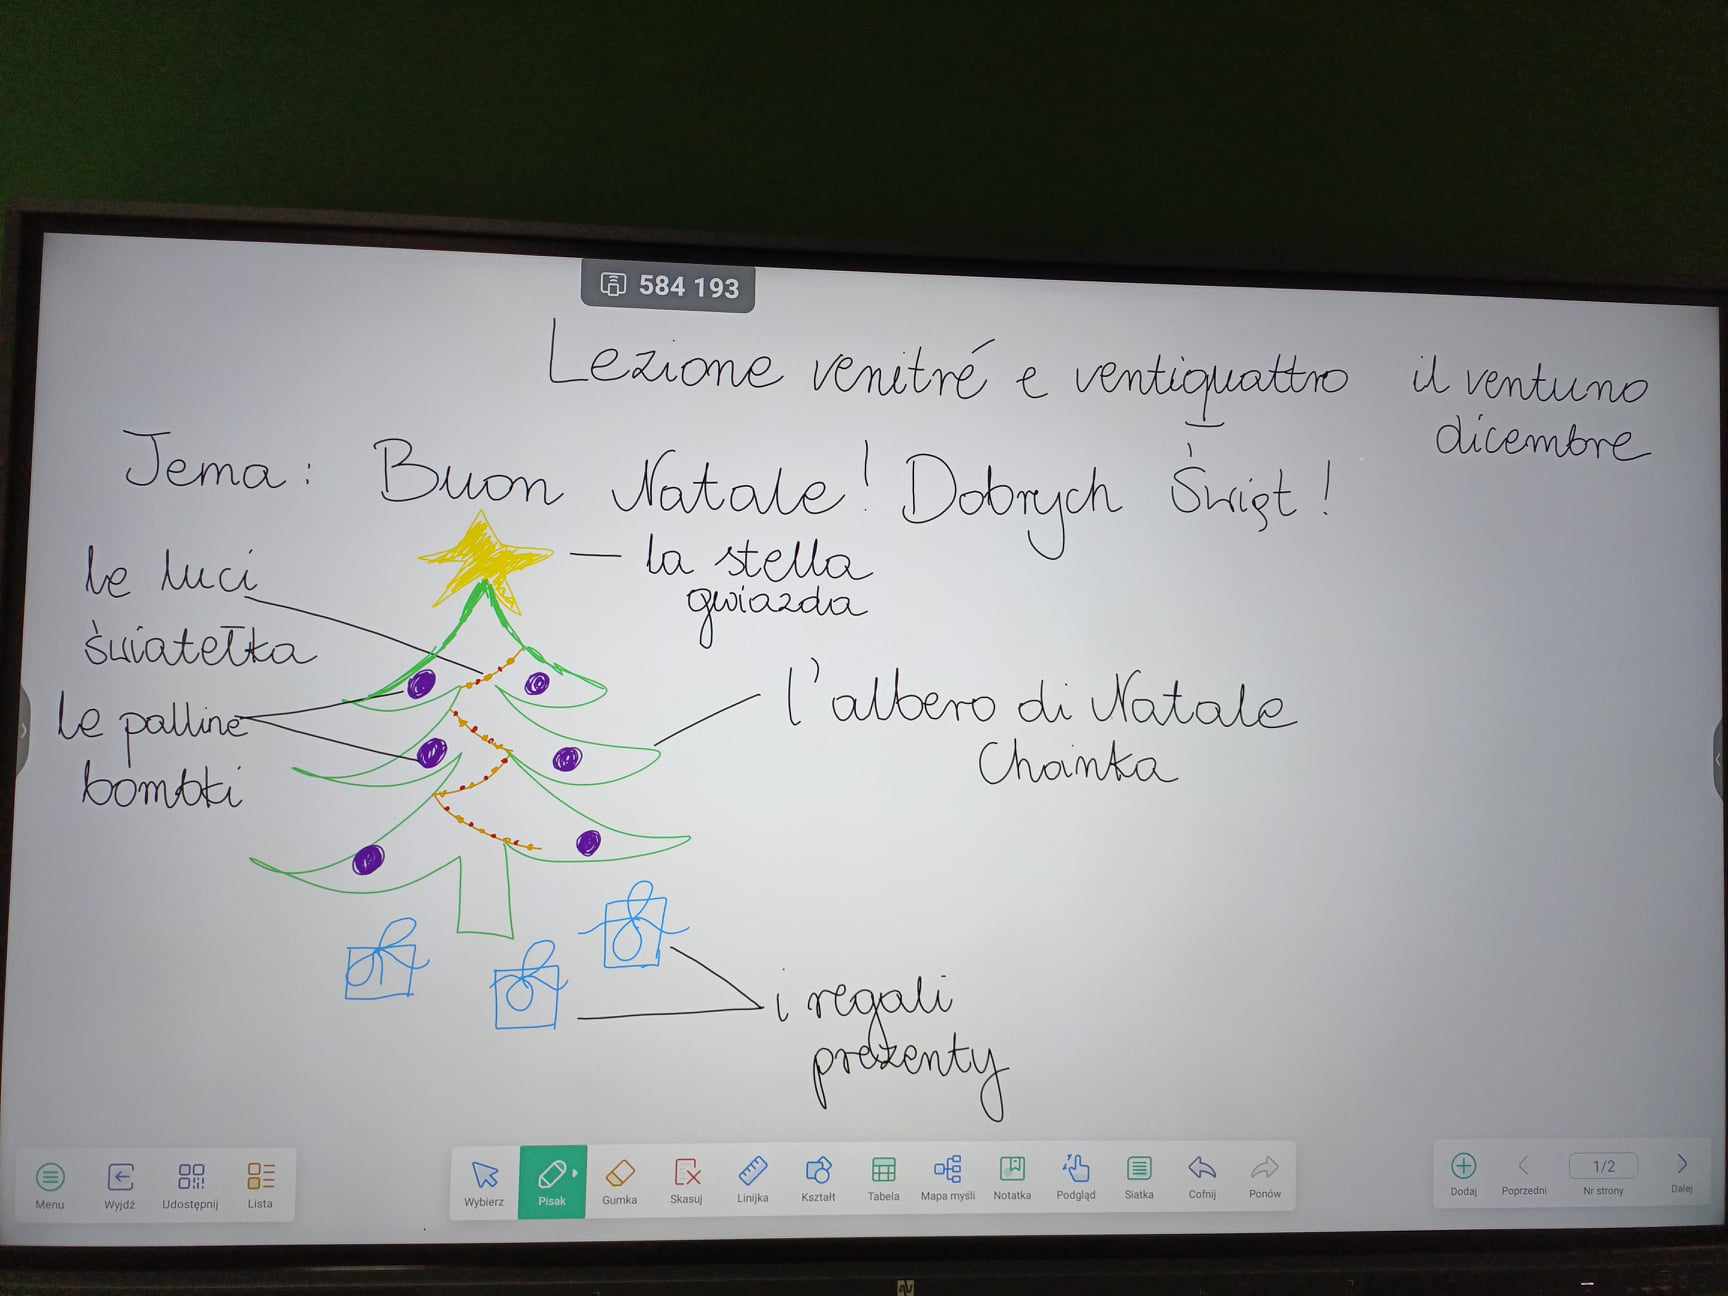 584 193
Lezione venitré e ventiquattro il ventuno
dicembre
Tema: Buon Natale! Dobrych Świąt!
la stella
gwiazda
le luci
światełka
le palline
bombki
l'albero di Natale
Choinka
i regali
prezenty
Menu Wyjdź Udostępnij Lista
Wybierz Pisak Gumka Skasuj Linijka Kształt Tabela Mapa myśli Notatka Podgląd Siatka Cofnij Ponów
Dodaj Poprzedni 1/2 Nr strony Dalej